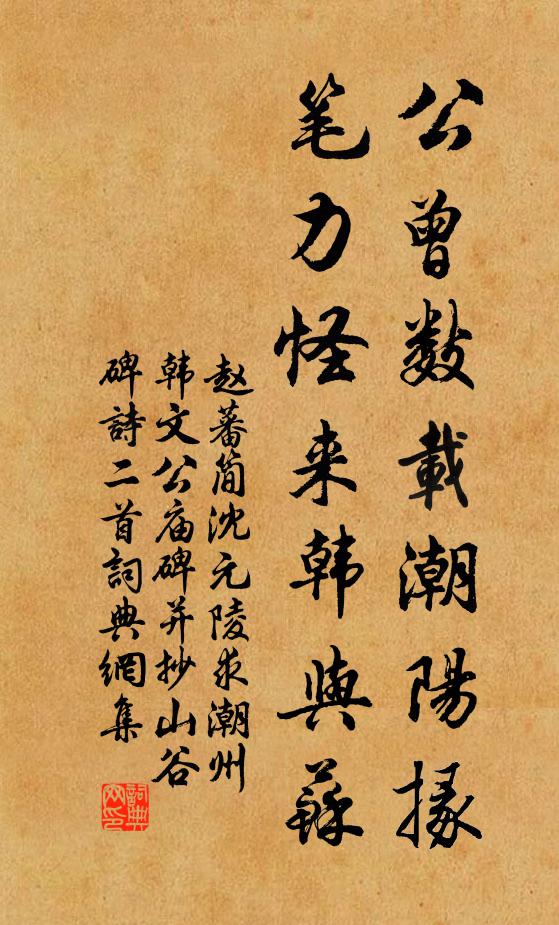 公曾数載潮陽掾
笔力怪来韩與蘇
赵蕃简沈元陵求潮州
韩文公庙碑并抄山谷
碑詩二首詞典網集
詞典
网印